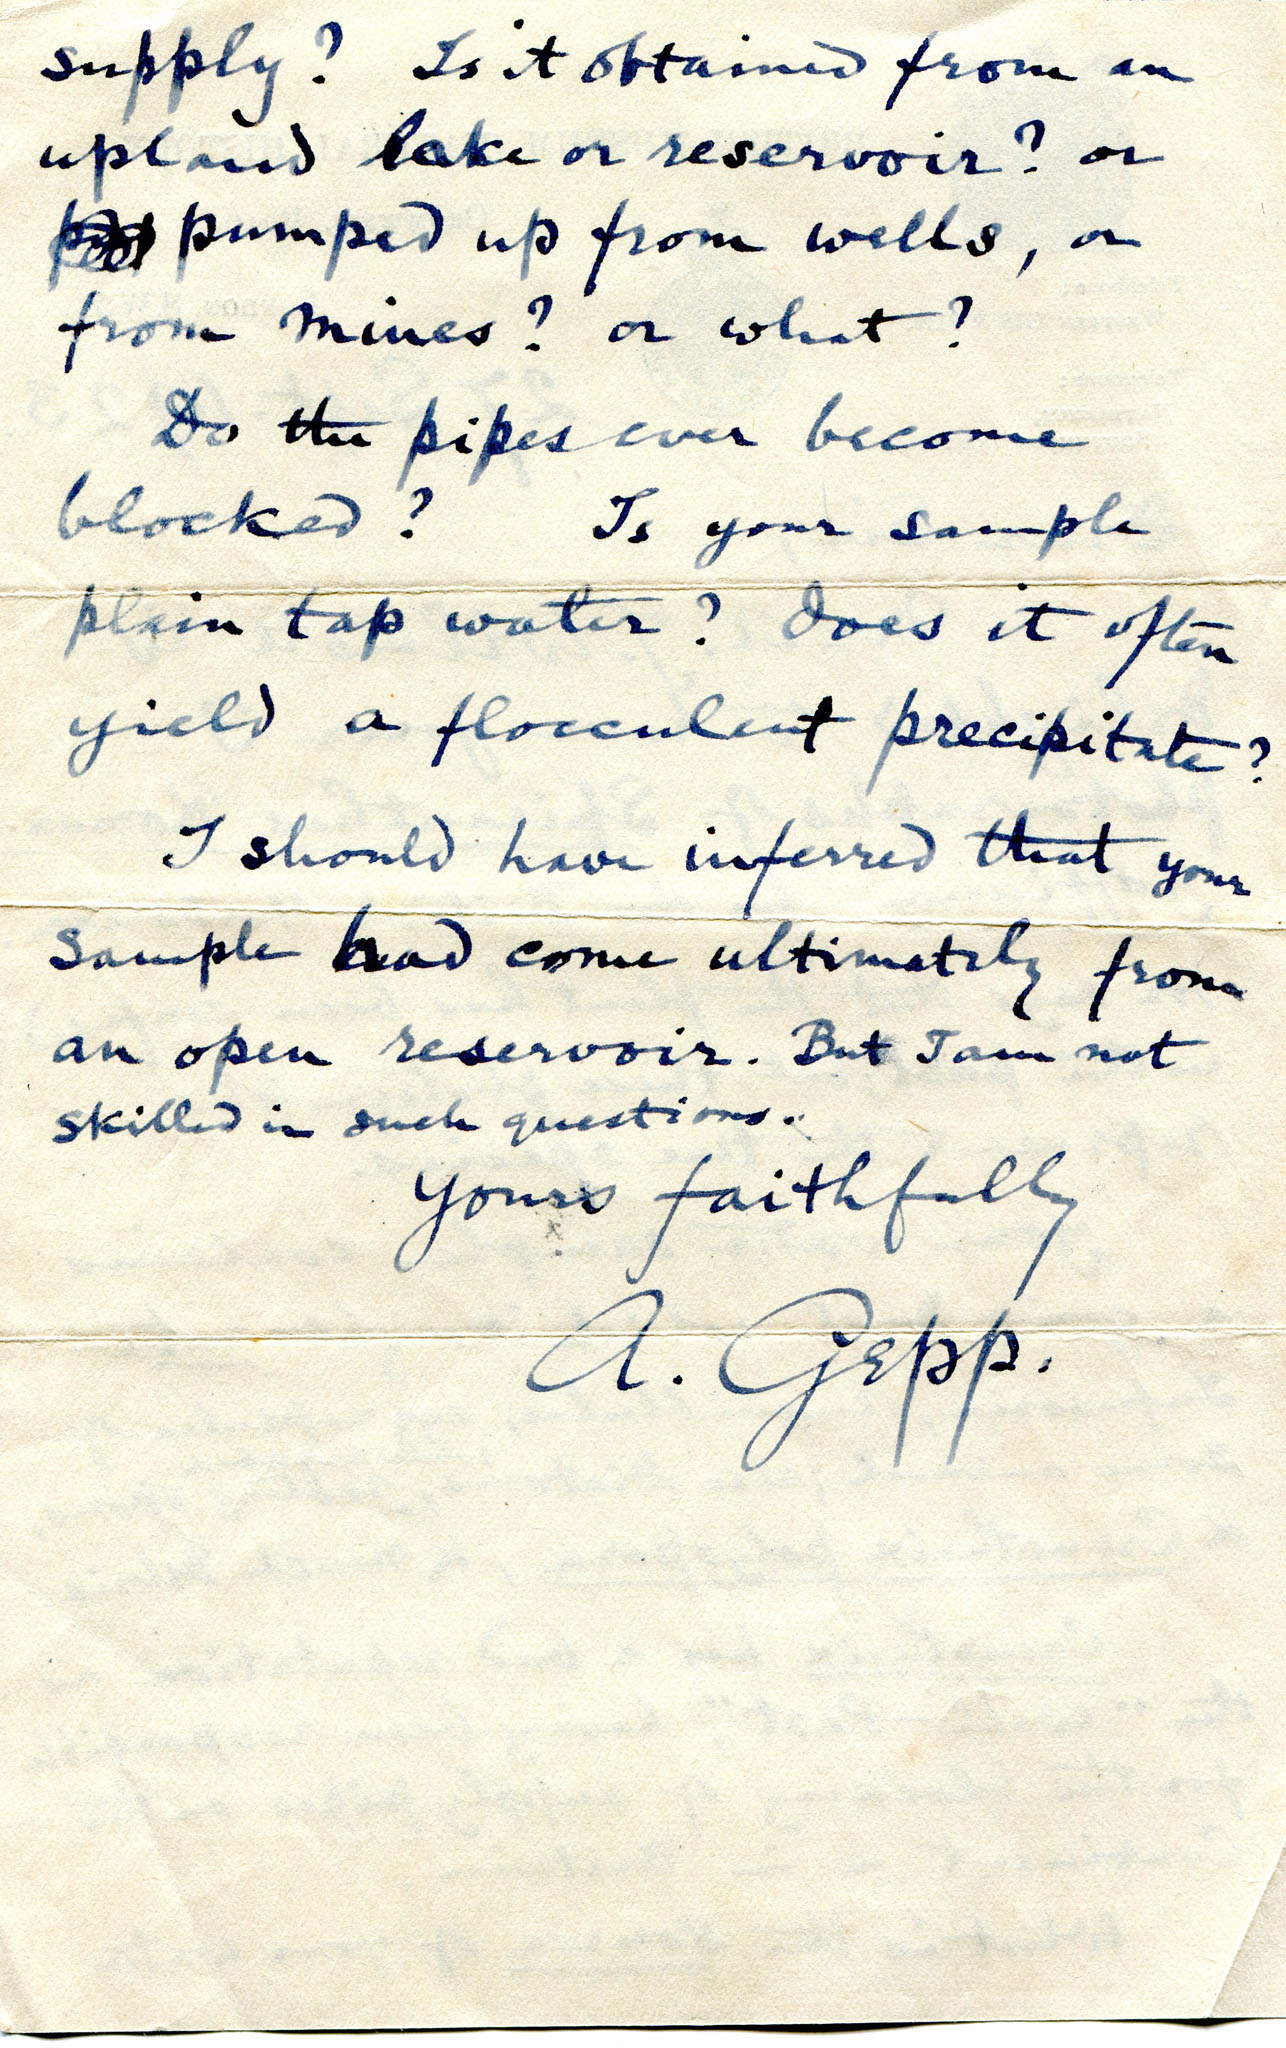 supply? Is it obtained from an
upland lake or reservoir? or
pumped up from wells, or
from mines? or what?
Do the pipes ever become
blocked? Is your sample
plain tap water? Does it often
yield a flocculent precipitate?
I should have inferred that your
sample had come ultimately from
an open reservoir. But I am not
skilled in such questions.
Yours faithfully
A. Gepp.